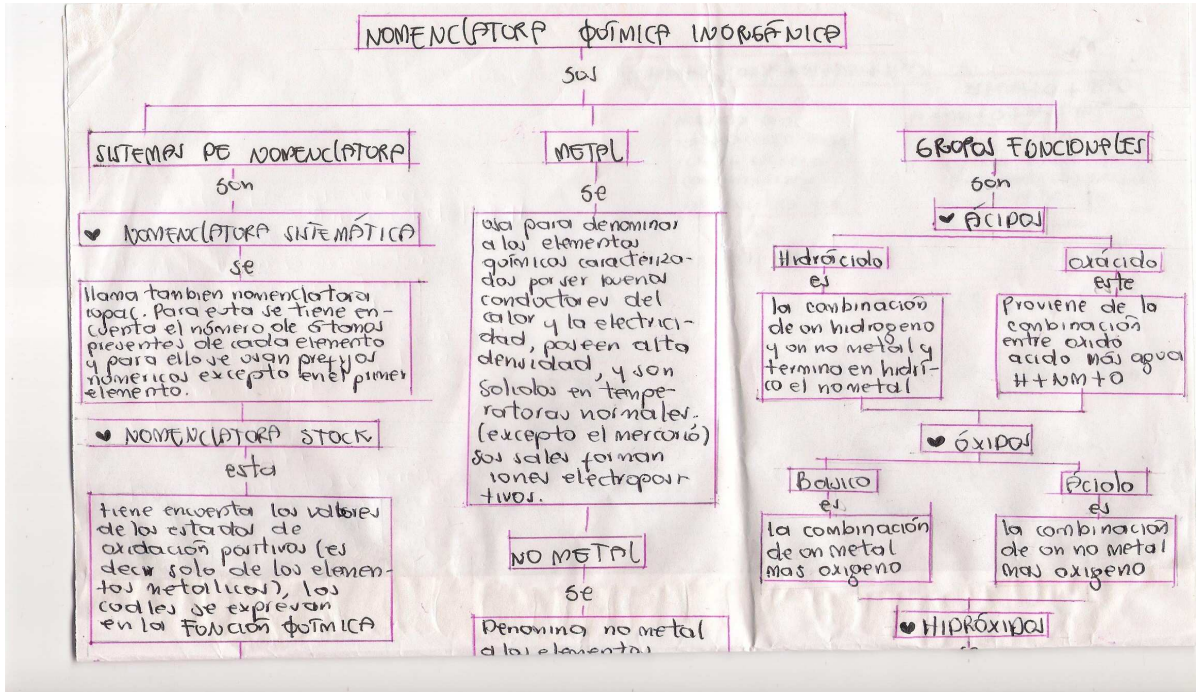 NOMENCLATURA QUÍMICA INORGÁNICA
son
SISTEMAS DE NOMENCLATURA
son
♥ NOMENCLATURA SISTEMÁTICA
se
llama tambien nomenclatura
iupac. Para esta se tiene en
cuenta el número de átomos
presentes de cada elemento
y para ello se usan prefijos
númericos excepto en el primer
elemento.
♥ NOMENCLATURA STOCK
esta
tiene encuenta los valores
de los estados de
oxidación positivos (es
decir solo de los elemen-
tos metálicos), los
cuales se expresan
en la FUNCIÓN QUÍMICA
METAL
se
usa para denominar
a los elementos
químicos caracteriza-
dos por ser buenos
conductores del
calor y la electrici-
dad, poseen alta
densidad, y son
solidos en tempe-
raturas normales.
(excepto el mercurio)
sus sales forman
iones electroposi
tivos.
NO METAL
se
Denomina no metal
a los elementos
GRUPOS FUNCIONALES
son
♥ ÁCIDOS
Hidrácido
es
la conbinación
de un hidrogeno
y un no metal y
termina en hidri-
co el no metal
oxácido
este
Proviene de la
conbinación
entre oxido
acido más agua
H + NM + O
♥ ÓXIDOS
Basico
es
la combinación
de un metal
mas oxigeno
Ácido
es
la combinación
de un no metal
mas oxigeno
♥ HIDRÓXIDOS